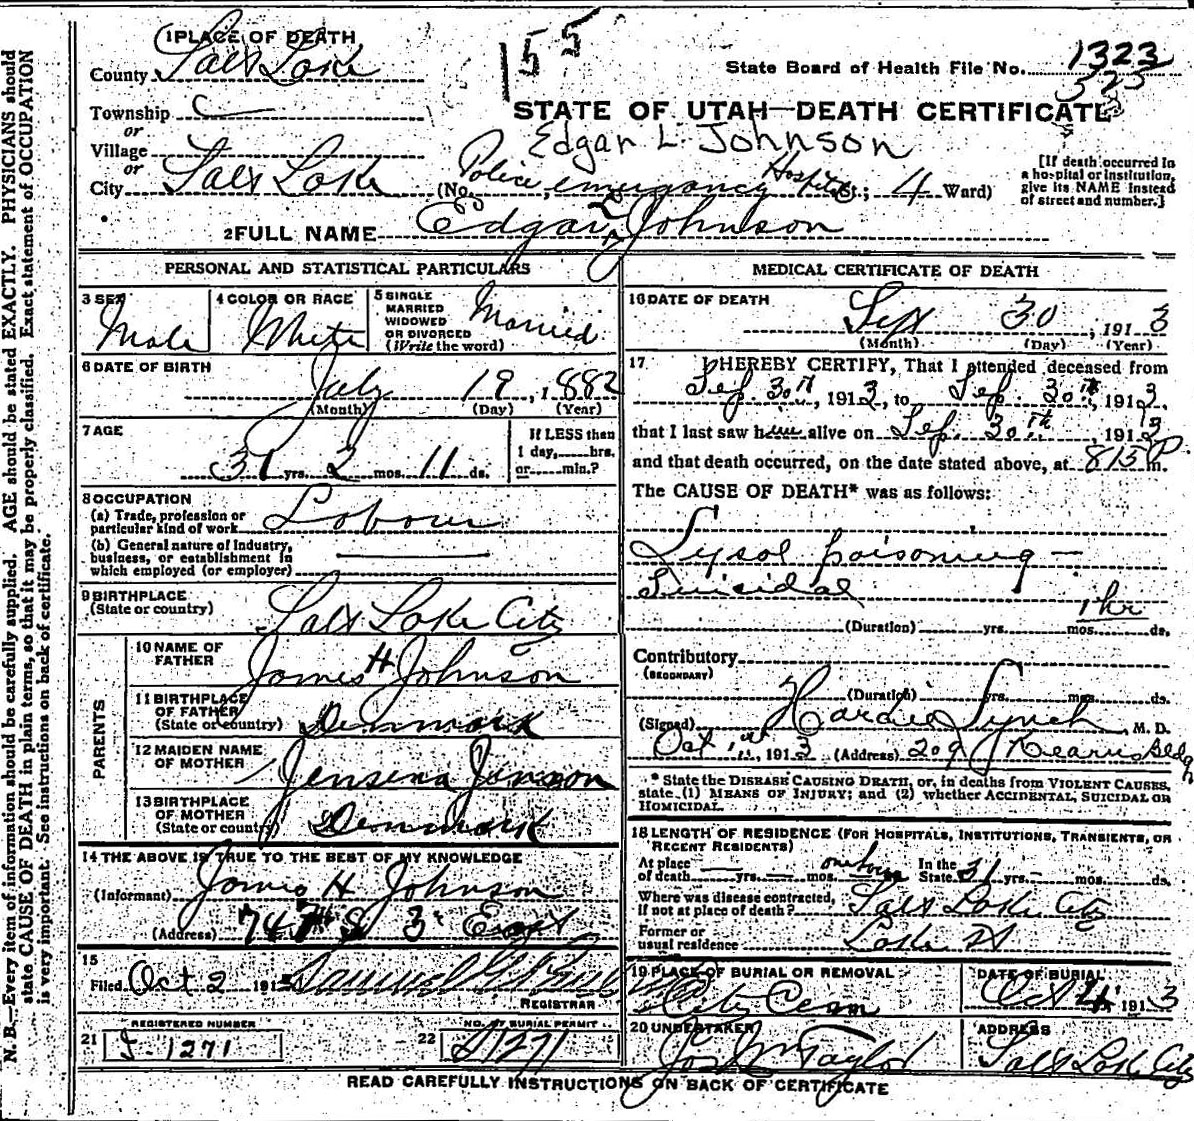 N. B.—Every item of information should be carefully supplied. AGE should be stated EXACTLY. PHYSICIANS should
state CAUSE OF DEATH in plain terms, so that it may be properly classified. Exact statement of OCCUPATION
is very important. See instructions on back of certificate.
1 PLACE OF DEATH
155
State Board of Health File No. 1323
525
County Salt Lake
STATE OF UTAH—DEATH CERTIFICATE
Township
or
Village
Edgar L. Johnson
or
City Salt Lake (No. Police emergency Hospital St.; 4 Ward)
[If death occurred in
a hospital or institution,
give its NAME instead
of street and number.]
2 FULL NAME Edgar L Johnson
PERSONAL AND STATISTICAL PARTICULARS
3 SEX Male
4 COLOR OR RACE White
5 SINGLE
MARRIED
WIDOWED
OR DIVORCED
(Write the word) Married
6 DATE OF BIRTH
July 19, 1882
(Month) (Day) (Year)
7 AGE
31 yrs. 2 mos. 11 ds.
If LESS than
1 day, hrs.
or min.?
8 OCCUPATION
(a) Trade, profession or
particular kind of work Labour
(b) General nature of industry,
business, or establishment in
which employed (or employer)
9 BIRTHPLACE
(State or country) Salt Lake City
PARENTS
10 NAME OF
FATHER James H Johnson
11 BIRTHPLACE
OF FATHER
(State or country) Denmark
12 MAIDEN NAME
OF MOTHER Jensena Jenson
13 BIRTHPLACE
OF MOTHER
(State or country) Denmark
14 THE ABOVE IS TRUE TO THE BEST OF MY KNOWLEDGE
(Informant) James H Johnson
(Address) 747 S 3 East
15
Filed Oct 2 1913
REGISTRAR
REGISTERED NUMBER
21 I-1271
NO. OF BURIAL PERMIT
22 I1271
MEDICAL CERTIFICATE OF DEATH
16 DATE OF DEATH
Sept 30, 1913
(Month) (Day) (Year)
17 I HEREBY CERTIFY, That I attended deceased from
Sep. 30th, 1913, to Sep. 30th, 1913,
that I last saw him alive on Sep. 30th, 1913
and that death occurred, on the date stated above, at 815 P m.
The CAUSE OF DEATH* was as follows:
Lysol poisoning —
Suicidal
1 hr
(Duration) yrs. mos. ds.
Contributory
(SECONDARY)
(Duration) yrs. mos. ds.
(Signed) Hardie Lynch, M. D.
Oct 1st, 1913 (Address) 209 Kearns Bldg
* State the DISEASE CAUSING DEATH, or, in deaths from VIOLENT CAUSES,
state (1) MEANS OF INJURY; and (2) whether ACCIDENTAL, SUICIDAL OR
HOMICIDAL.
18 LENGTH OF RESIDENCE (FOR HOSPITALS, INSTITUTIONS, TRANSIENTS, OR
RECENT RESIDENTS)
At place
of death yrs. mos. one hour ds. In the
State 31 yrs. mos. ds.
Where was disease contracted,
if not at place of death? Salt Lake City
Former or
usual residence
19 PLACE OF BURIAL OR REMOVAL
City Cem
DATE OF BURIAL
Oct 4 1913
20 UNDERTAKER
Jos Wm Taylor
ADDRESS
Salt Lake City
READ CAREFULLY INSTRUCTIONS ON BACK OF CERTIFICATE